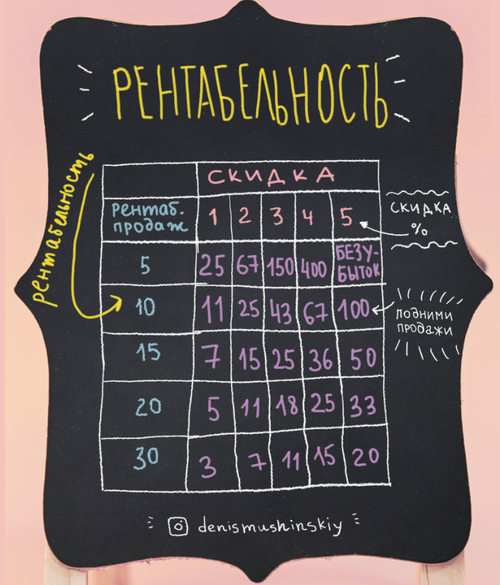 РЕНТАБЕЛЬНОСТЬ
рентабельность
СКИДКА
Рентаб. продаж 1 2 3 4 5
СКИДКА
%
5 25 67 150 400 БЕЗУ-БЫТОК
10 11 25 43 67 100
ПОДНИМИ
ПРОДАЖИ
15 7 15 25 36 50
20 5 11 18 25 33
30 3 7 11 15 20
denismushinskiy